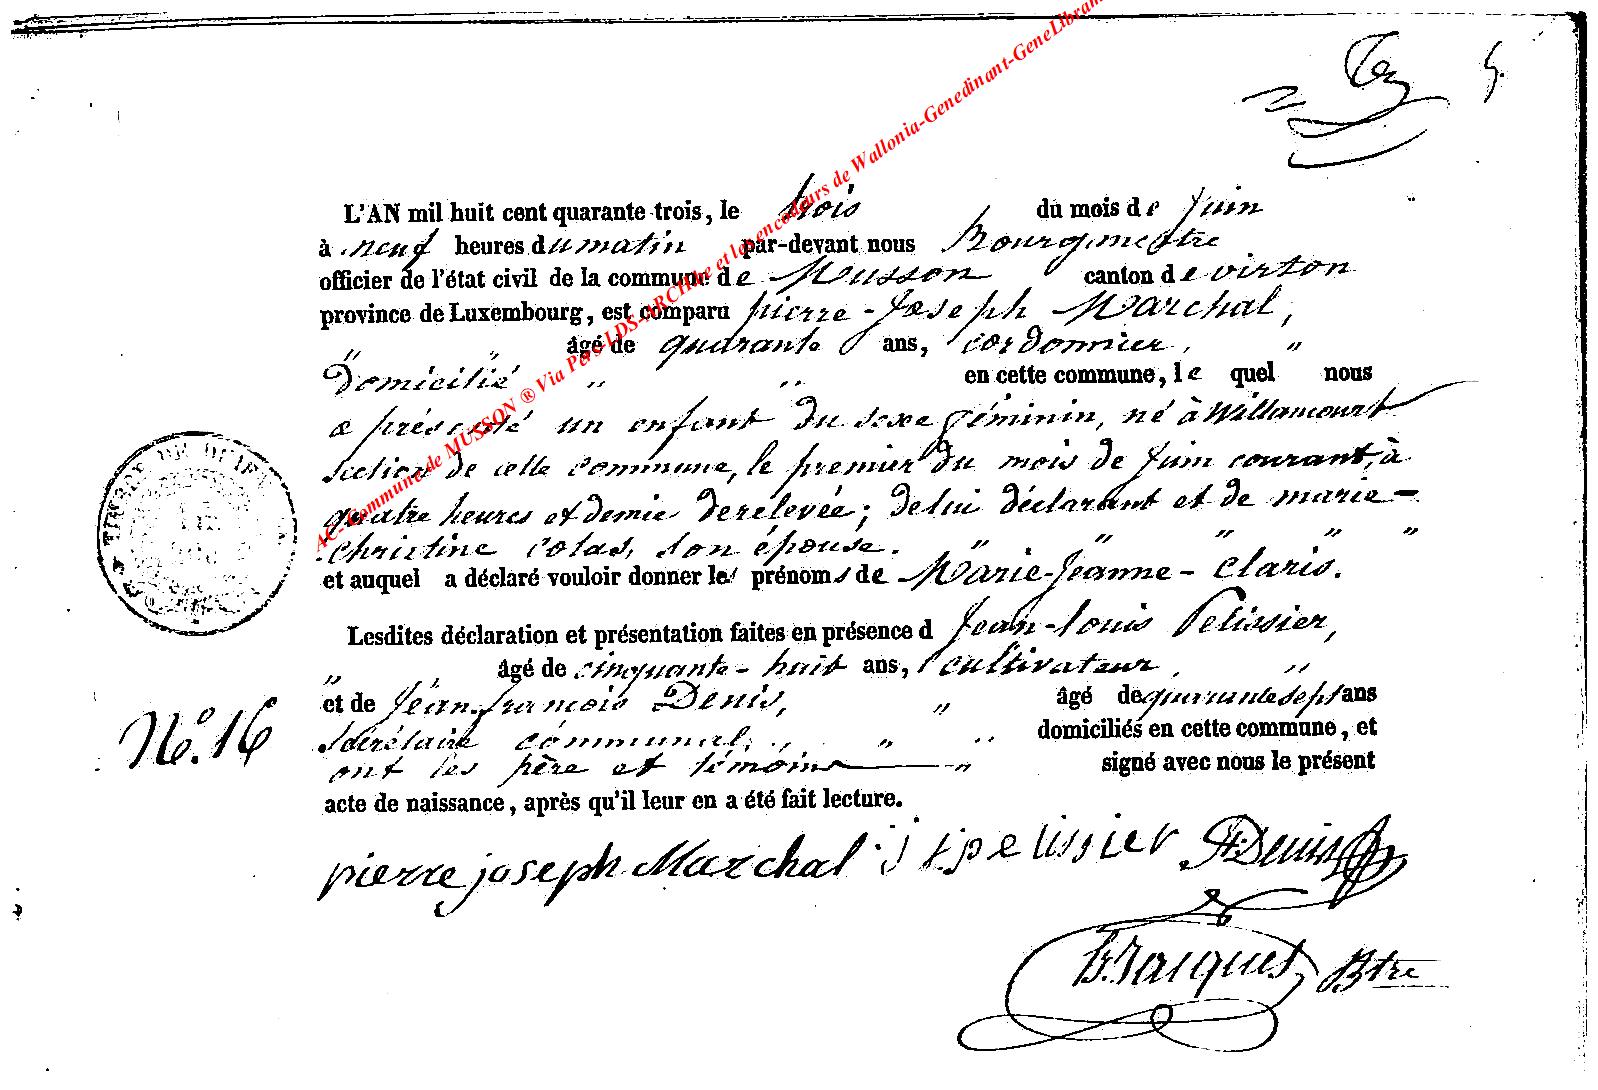 5.
AC-Commune de MUSSON ® Via Pers-LDS-ARCHbe et les encodeurs de Wallonia-Genedinant-GeneLibram
L'AN mil huit cent quarante trois, le trois du mois de Juin
à neuf heures du matin par-devant nous Bourgmestre
officier de l'état civil de la commune de Musson canton de virton
province de Luxembourg, est comparu pierre-Joseph Marchal,
" " âgé de quarante ans, cordonnier, "
Domicilié " " en cette commune, le quel nous
a présenté un enfant du sexe féminin, né à Willancourt
section de cette commune, le premier du mois de Juin courant, à
quatre heures et demie de relevée; de lui déclarant et de marie-
christine colas, son épouse. " " " " "
et auquel a déclaré vouloir donner les prénoms de Marie-Jeanne-Claris.
Lesdites déclaration et présentation faites en présence d Jean-Louis Pelissier,
" " âgé de cinquante-huit ans, cultivateur, "
et de Jean-françois Denis, " âgé de quarante sept ans
No. 16
Sécrétaire communal, " " " domiciliés en cette commune, et
ont les père et témoins " signé avec nous le présent
acte de naissance, après qu'il leur en a été fait lecture.
pierre joseph Marchal j l pelissier Denis
Jacques Btre